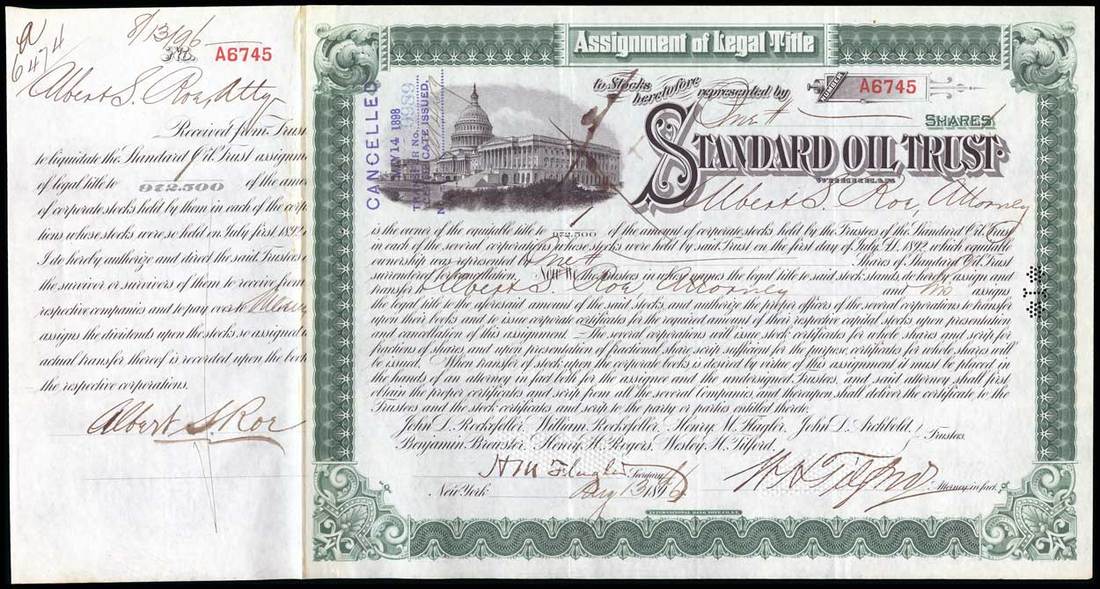 8/13/96
6474
No. A6745
Albert S. Roe, Atty
Received from Trust
to liquidate the Standard Oil Trust assignm
of legal title to 1/972.500 of the amo
of corporate stocks held by them in each of the corp
tions whose stocks were so held on July first 1892.
I do hereby authorize and direct the said Trustees o
the survivor or survivors of them to receive from
respective companies and to pay over
assigns the dividends upon the stocks so assigned u
actual transfer thereof is recorded upon the book
the respective corporations.
Albert S. Roe
Assignment of Legal Title
to Stocks
heretofore represented by
NUMBER A6745
One
SHARES
STANDARD OIL TRUST.
WHEREAS
CANCELLED
MAY 14 1898
TRANSFER No. 9989
CERTIFICATE ISSUED,
Albert S. Roe, Attorney
is the owner of the equitable title to 1/972.500 of the amount of corporate stocks held by the Trustees of the Standard Oil Trust
in each of the several corporations whose stocks were held by said Trust on the first day of July A.D. 1892, which equitable
ownership was represented by One Shares of Standard Oil Trust
surrendered for cancellation. Now We the Trustees in whose names the legal title to said stocks stand, do hereby assign and
transfer to Albert S. Roe Attorney and his assigns
the legal title to the aforesaid amount of the said stocks, and authorize the proper officers of the several corporations to transfer
upon their books and to issue corporate certificates for the required amount of their respective capital stocks upon presentation
and cancellation of this assignment. The several corporations will issue stock certificates for whole shares and scrip for
fractions of shares and upon presentation of fractional share scrip sufficient for the purpose, certificates for whole shares will
be issued. When transfer of stock upon the corporate books is desired by virtue of this assignment it must be placed in
the hands of an attorney in fact both for the assignee and the undersigned Trustees, and said attorney shall first
obtain the proper certificates and scrip from all the several companies, and thereupon shall deliver the certificate to the
Trustees and the stock certificates and scrip to the party or parties entitled thereto.
John D. Rockefeller, William Rockefeller, Henry M. Flagler, John D. Archbold,
Benjamin Brewster, Henry H. Rogers, Wesley H. Tilford, Trustees.
H M Flagler Secretary
W H Tilford Attorney in fact.
New York Aug 13 1896
INTERNATIONAL BANK NOTE CO. N.Y.